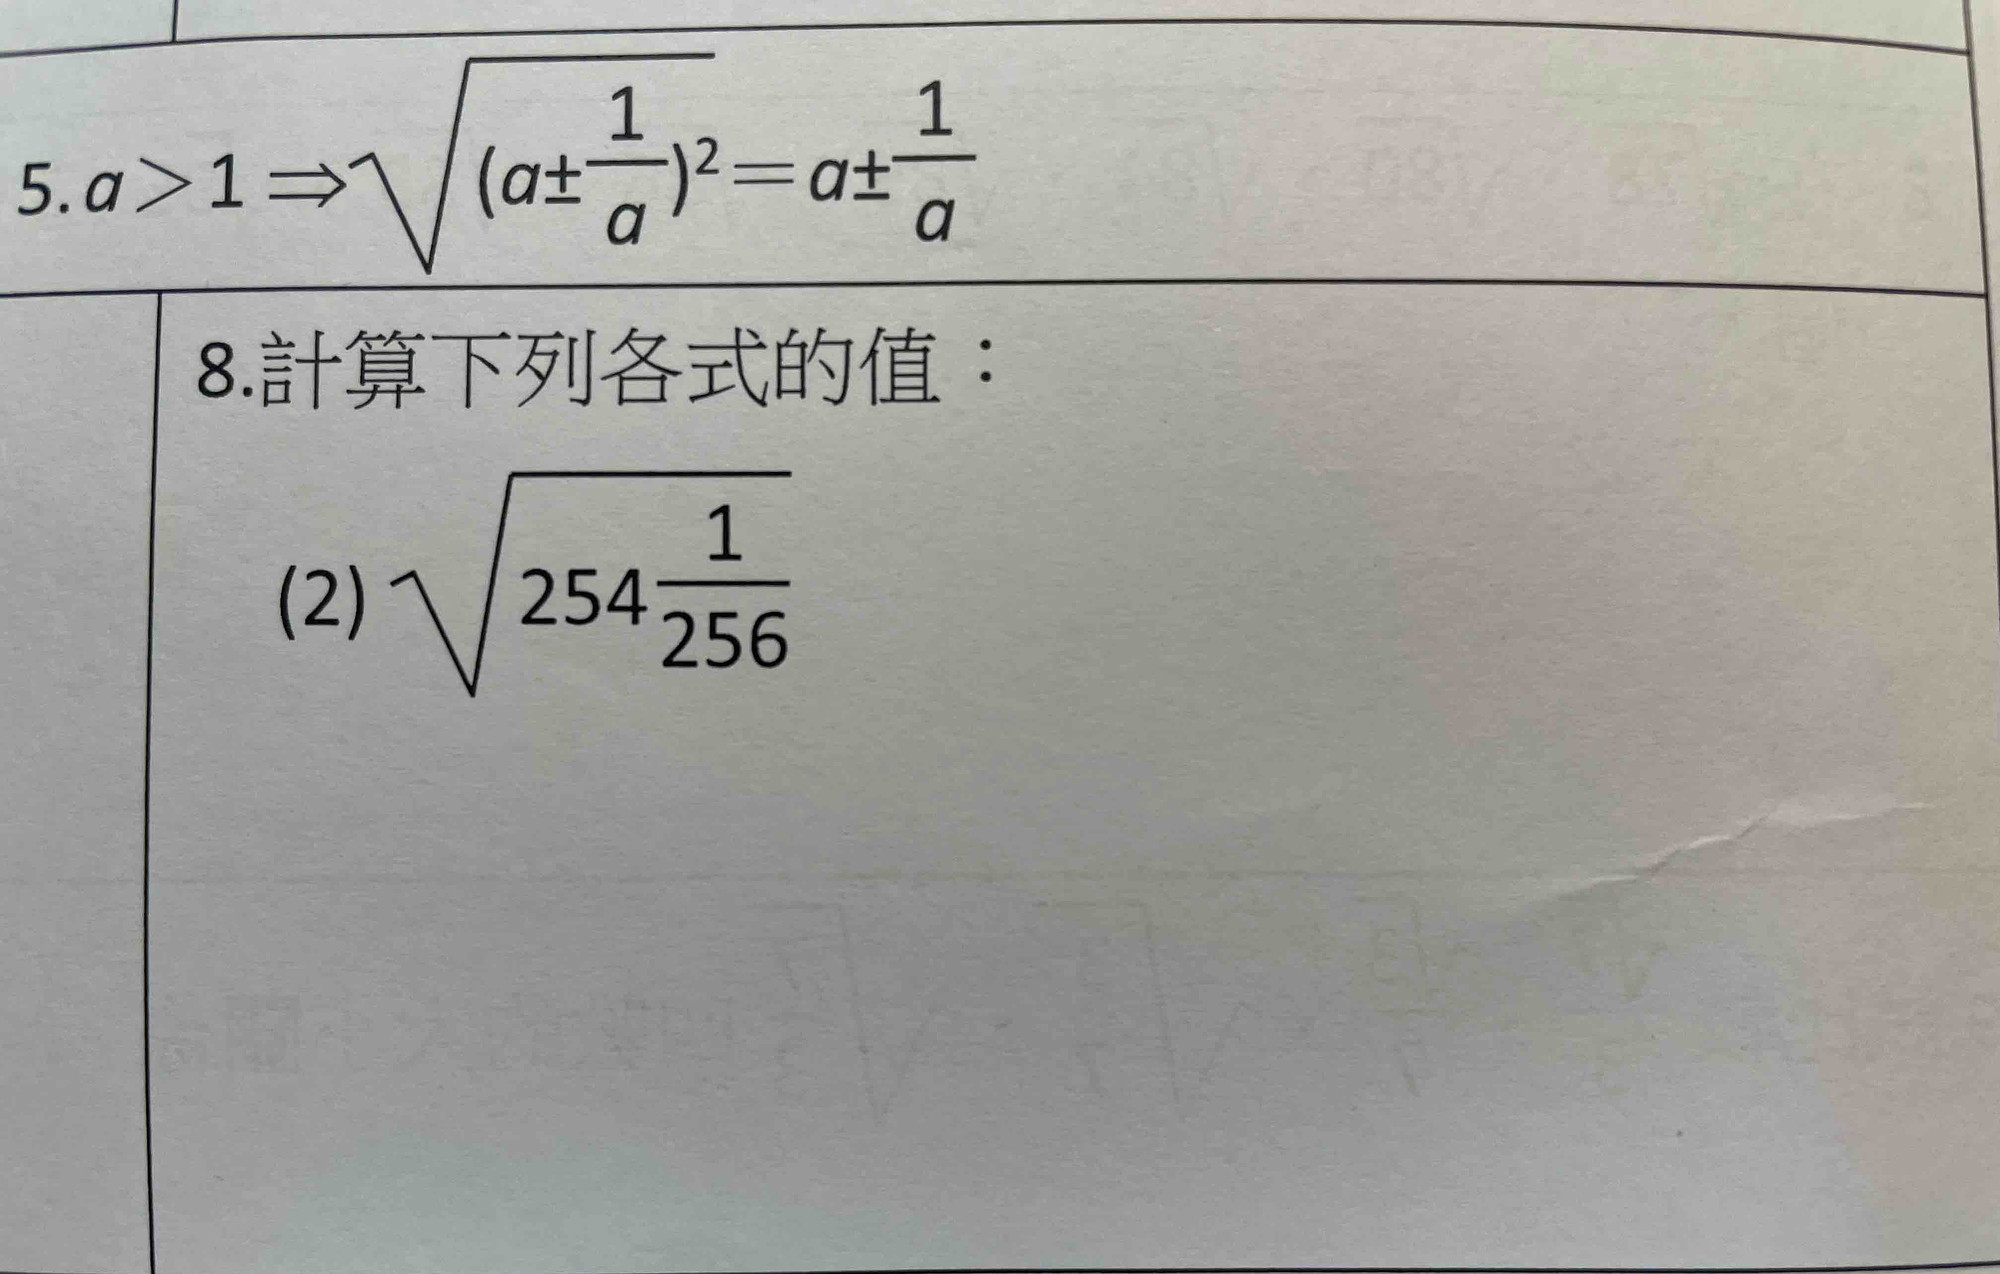 5. a > 1 ⇒ √(a ± 1/a)² = a ± 1/a
8.計算下列各式的值：
(2) √254 1/256